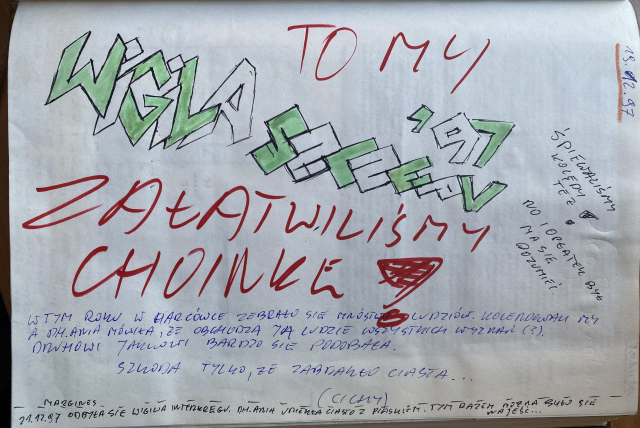 19.12.97
TO MY
WiGiLA
SZCZEPU '97
ZAŁATWILIŚMY
CHOINKĘ
ŚPIEWALIŚMY
KOLĘDY
TEŻ
NO I OPŁATEK BYŁ
MA SIĘ
ROZUMIEĆ
W TYM ROKU W HARCÓWCE ZEBRAŁO SIĘ MNÓSTWO LUDZIÓW. KOLENDOWALI MY
A DH. ANIA MÓWIŁA, ŻE OBCHODZĄ JĄ LUDZIE WSZYSTKICH WYZNAŃ (?).
DRUHOWI JAKUBOWI BARDZO SIĘ PODOBAŁA.
SZKODA TYLKO, ŻE ZABRAKŁO CIASTA...
(CICHY)
MARGINES
21.12.97 ODBYŁA SIĘ WIGILIA INTERKRĘGU. DH. ANIA UPIEKŁA CIASTO Z PIASKIEM. TYM RAZEM MOŻNA BYŁO SIĘ
NAJEŚĆ...